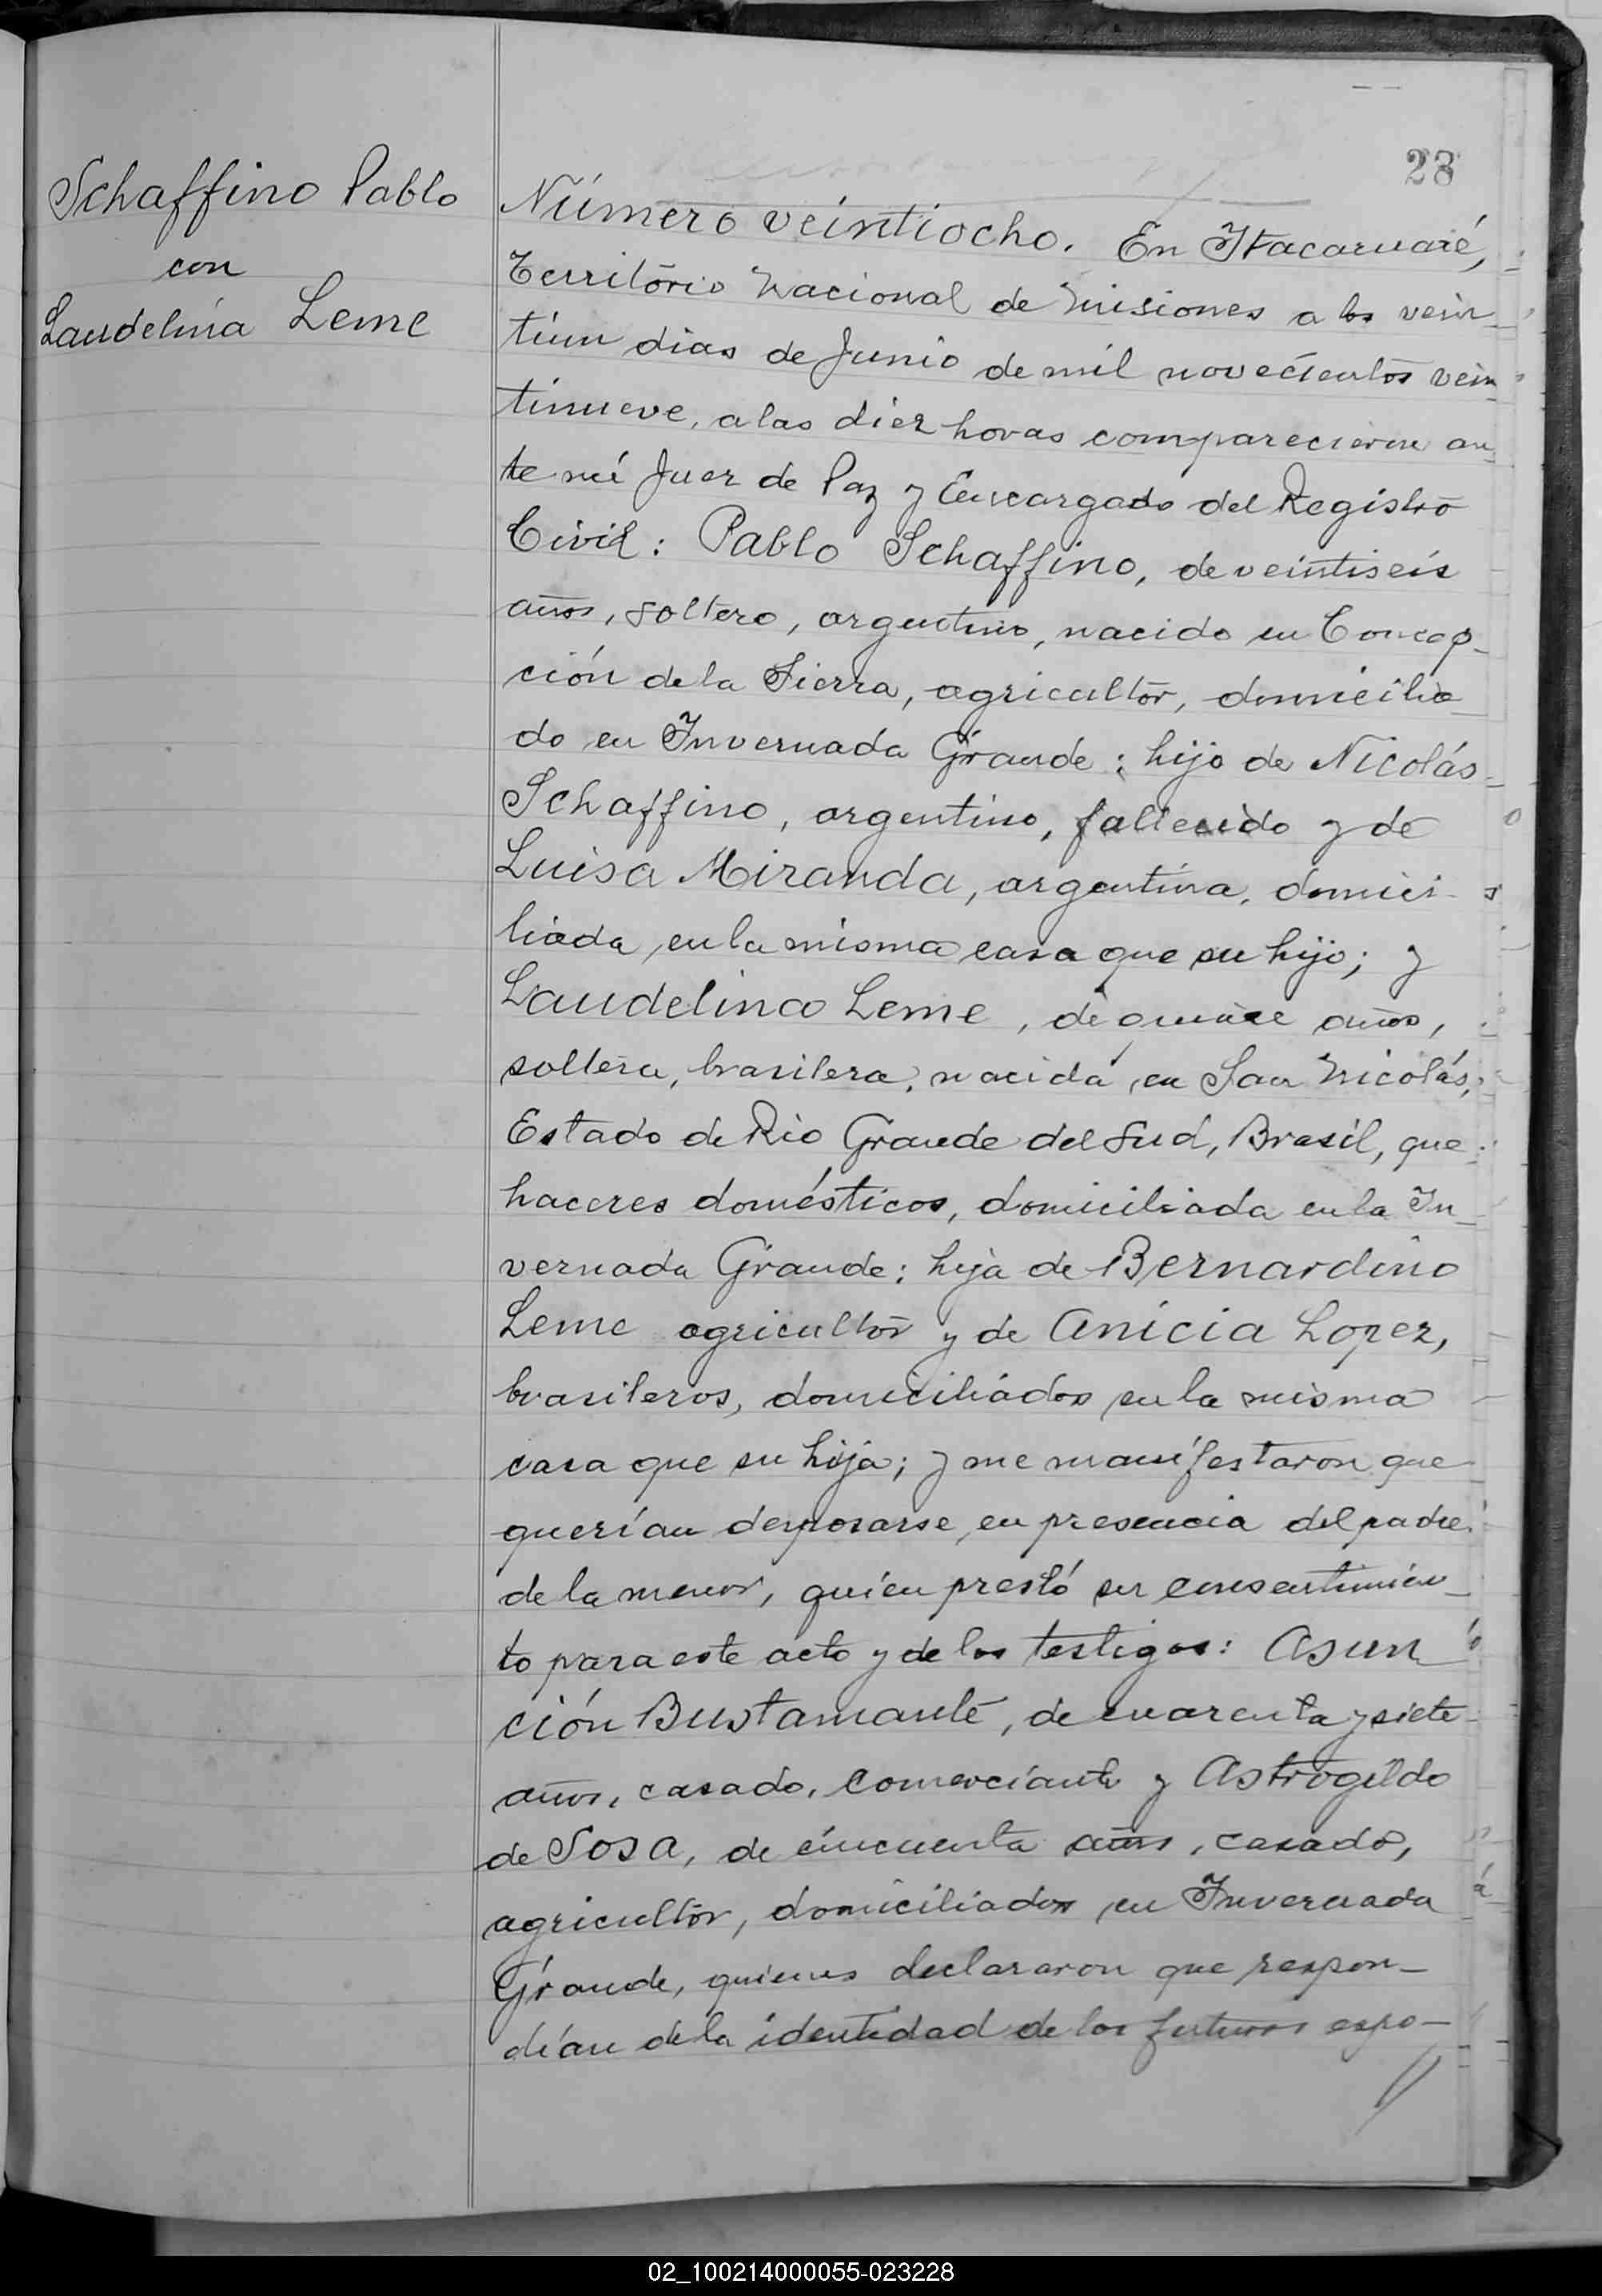 Schaffino Pablo
con
Laudelina Leme
28
Número veintiocho. En Itacaruaré,
Territorio Nacional de Misiones a los vein
tiun dias de Junio de mil novecientos vein
tinueve, a las diez horas comparecieron an
te mí Juez de Paz y Encargado del Registro
Civil: Pablo Schaffino, de veintiseis
años, soltero, argentino, nacido en Concep-
ción de la Sierra, agricultor, domicilia
do en Invernada Grande: hijo de Nicolás
Schaffino, argentino, fallecido y de
Luisa Miranda, argentina, domici-
liada en la misma casa que su hijo; y
Laudelina Leme, de quince años,
soltera, brasilera, nacida en San Nicolás,
Estado de Rio Grande del Sud, Brasil, que
haceres domésticos, domiciliada en la In
vernada Grande: hija de Bernardino
Leme agricultor y de Anicia Lopez,
brasileros, domiciliados en la misma
casa que su hija; y me manifestaron que
querían desposarse, en presencia del padre
de la menor, quien prestó su consentimien
to para este acto y de los testigos: Asun
ción Bustamante, de cuarenta y siete
años, casado, comerciante y Astrogildo
de Sosa, de cincuenta años, casado,
agricultor, domiciliados en Invernada
Grande, quienes declararon que respon-
dían de la identidad de los futuros espo-
02_100214000055-023228